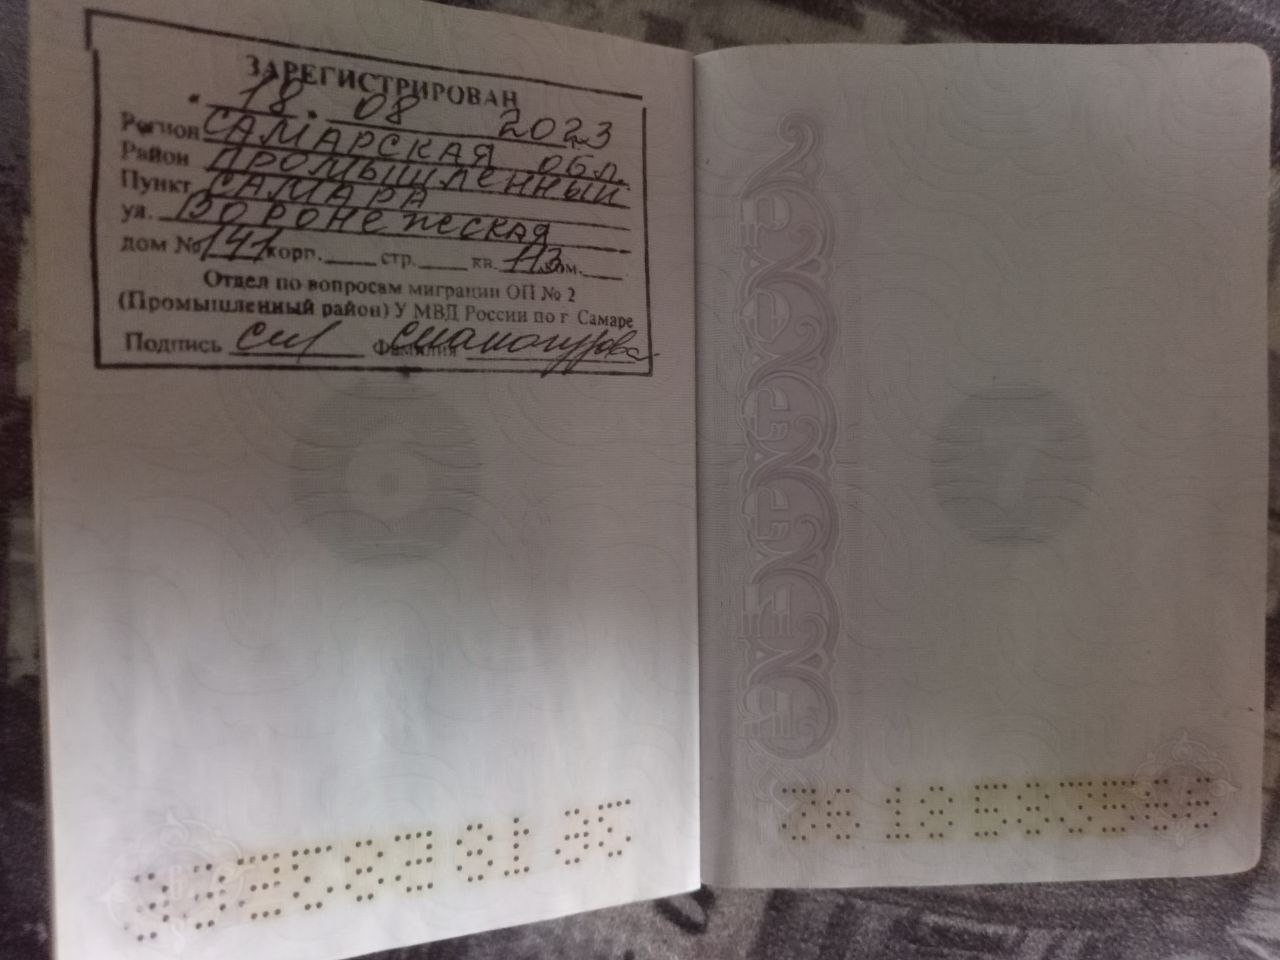 ЗАРЕГИСТРИРОВАН
18. 08 2023
Регион САМАРСКАЯ ОБЛ.
Район ПРОМЫШЛЕННЫЙ
Пункт САМАРА
ул. ВОРОНЕЖСКАЯ
дом № 141 корп. стр. кв. 113 ком.
Отдел по вопросам миграции ОП № 2
(Промышленный район) У МВД России по г Самаре
Подпись Фамилия